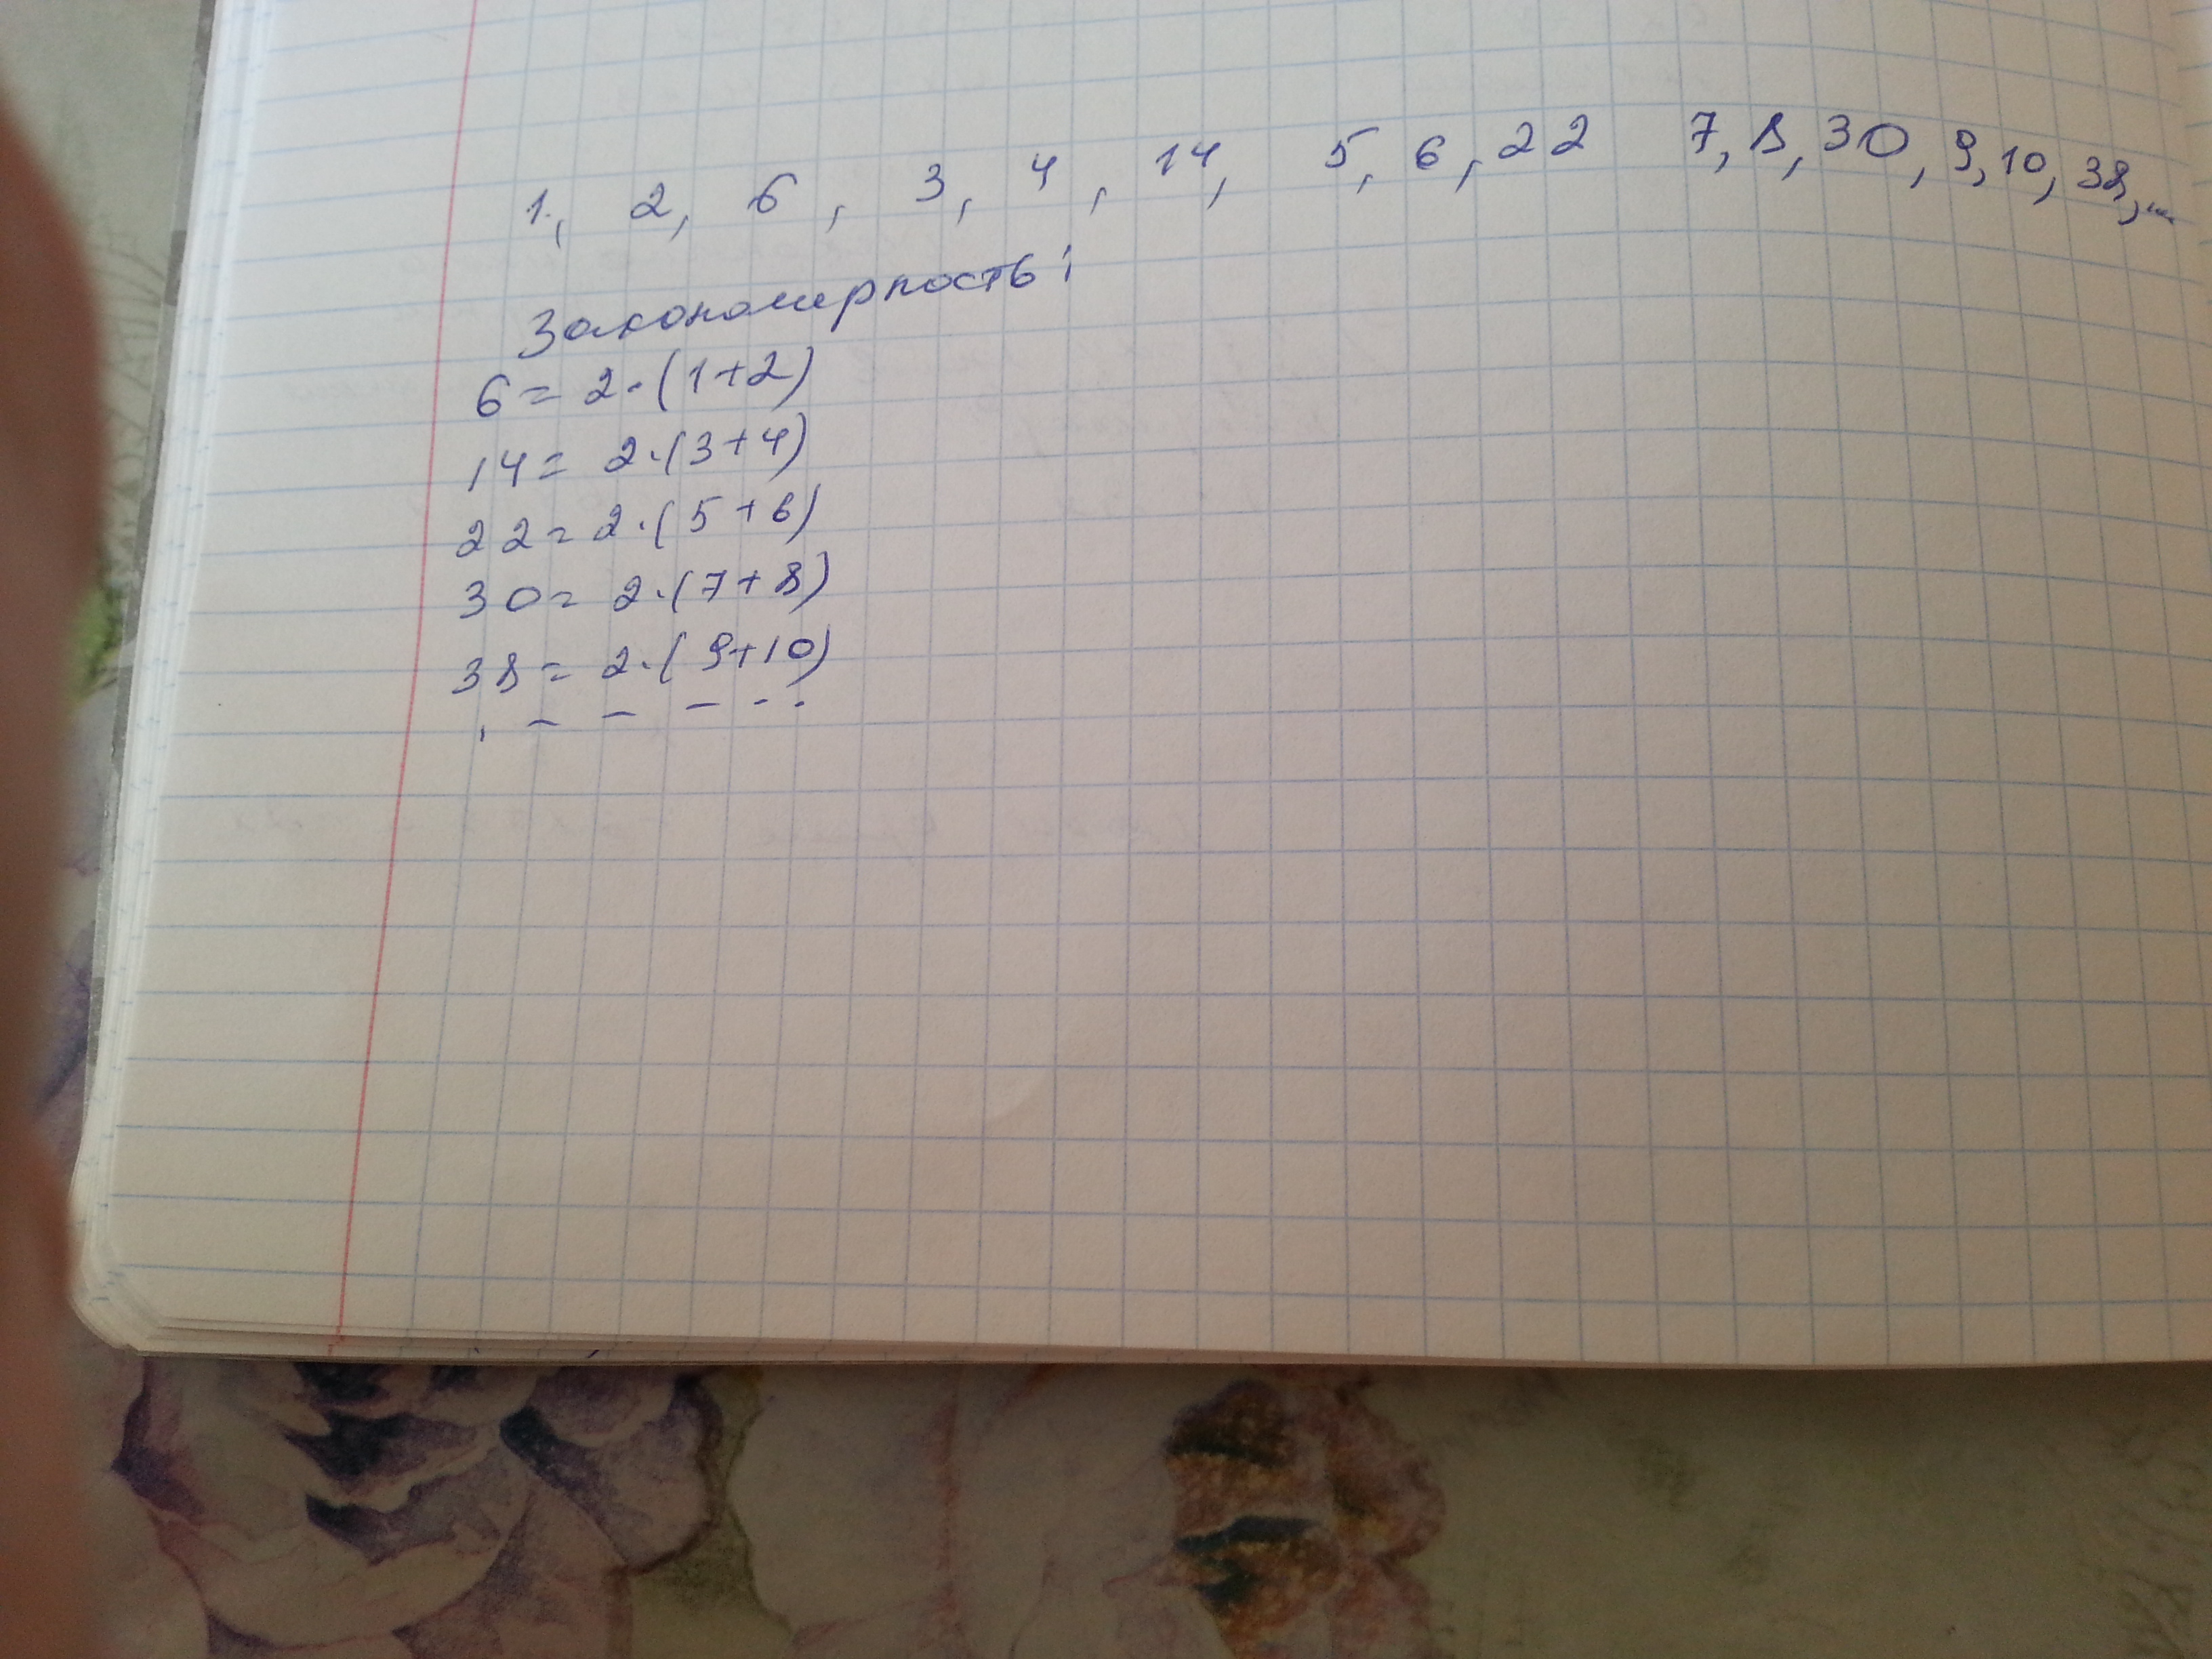 1, 2, 6, 3, 4, 14, 5, 6, 22 7, 8, 30, 9, 10, 38, ...
Закономерность:
6 = 2·(1+2)
14 = 2·(3+4)
22 = 2·(5+6)
30 = 2·(7+8)
38 = 2·(9+10)